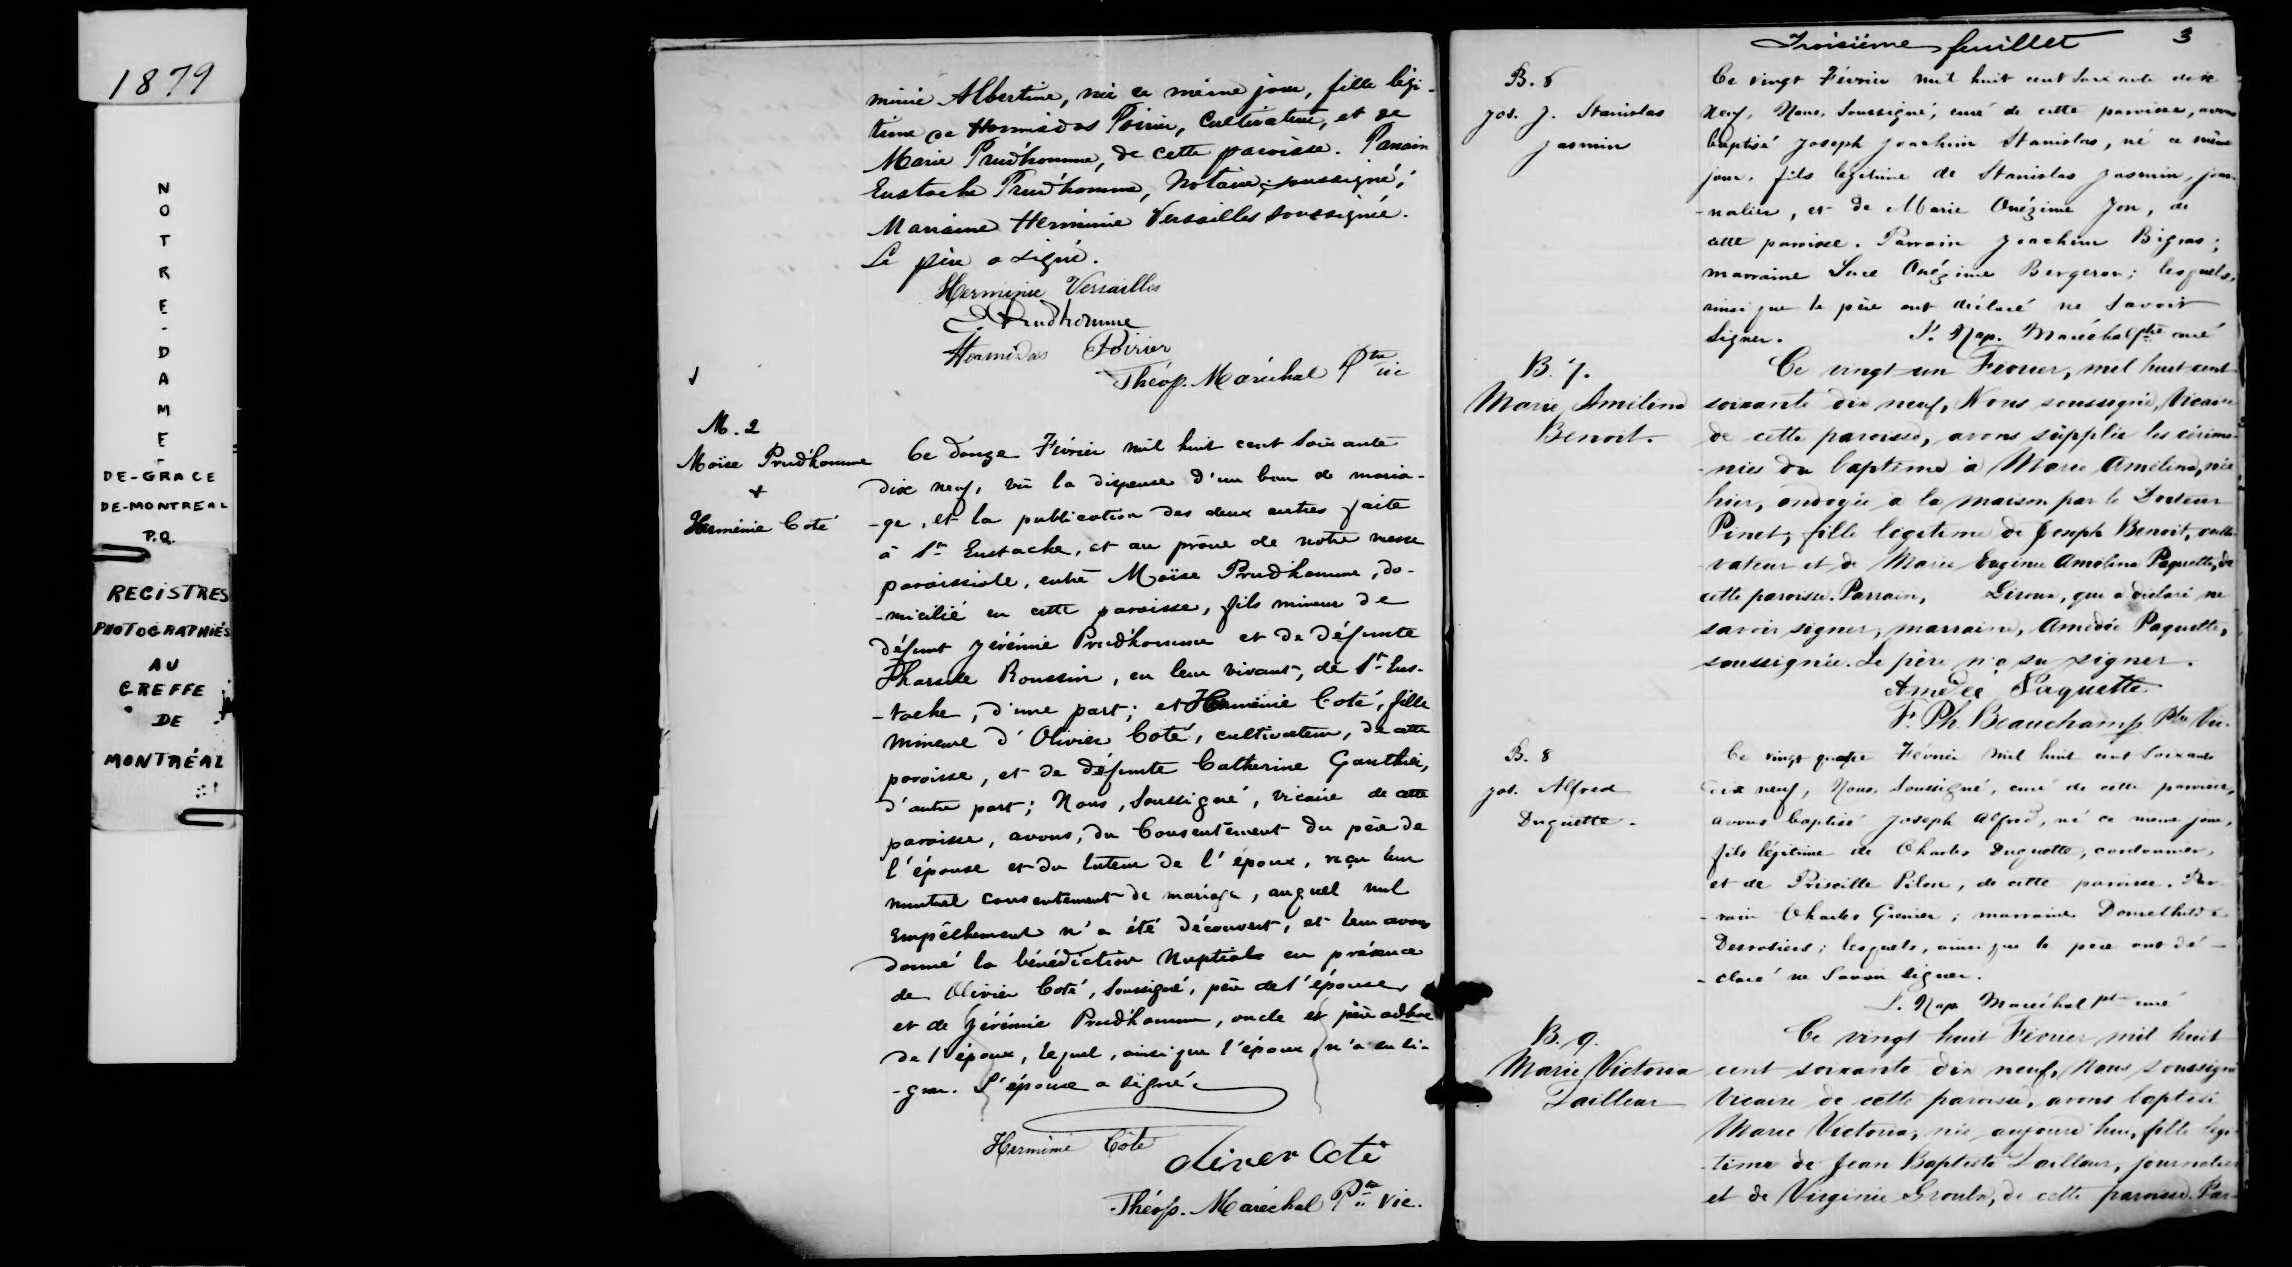 1879
NOTRE-DAME-
DE-GRACE
DE-MONTREAL
P.Q.
REGISTRES
PHOTOGRAPHIÉS
AU
GREFFE
DE
MONTRÉAL
minie Albertine, née ce même jour, fille légi-
time de Hormisdas Poirier, Cultivateur, et de
Marie Prud'homme, de cette paroisse. Parrain
Eustache Prud'homme, Notaire, soussigné;
Marraine Herminie Versailles soussignée.
Le père a signé.
Herminie Versailles
E. Prudhomme
Hormidas Poirier
Théop. Maréchal Ptre vic
M. 2
Moïse Prud'homme
+
Herménie Coté
Ce douze Février mil huit cent soixante
dix neuf, vu la dispense d'un ban de maria-
-ge, et la publication des deux autres faite
à St Eustache, et au prône de notre messe
paroissiale, entre Moïse Prud'homme, do-
-micilié en cette paroisse, fils mineur de
défunt Jérémie Prud'homme et de défunte
Tharsile Roussin, en leur vivant, de St Eus-
-tache, d'une part; et Herménie Coté, fille
mineure d'Olivier Coté, cultivateur, de cette
paroisse, et de défunte Catherine Gauthier,
d'autre part; Nous, soussigné, vicaire de cette
paroisse, avons, du Consentement du père de
l'épouse et du tuteur de l'époux, reçu leur
mutuel consentement de mariage, auquel nul
Empêchement n'a été découvert, et leur avons
donné la bénédiction Nuptiale en présence
de Olivier Coté, soussigné, père de l'épouse,
et de Jérémie Prud'homme, oncle et père adhoc
de l'époux, lequel, ainsi que l'époux, n'a su si-
-gner. L'épouse a signé.
Herminie Côté
Olivier Coté
Théop. Maréchal Ptre vic.
Troisième feuillet 3
B. 6
Jos. J. Stanislas
Jasmin
Ce vingt Février mil huit cent soixante dix
neuf, Nous, Soussigné, curé de cette paroisse, avons
baptisé Joseph Joachim Stanislas, né ce même
jour, fils légitime de Stanislas Jasmin, jour-
-nalier, et de Marie Onézime Jon, de
cette paroisse. Parrain Joachim Bigras;
marraine Luce Onézime Bergeron; lesquels,
ainsi que le père ont déclaré ne savoir
signer. L. Nap. Maréchal ptre curé
B. 7.
Marie Amélina
Benoit.
Ce vingt-un Février, mil huit cent
soixante dix neuf, Nous soussigné, Vicaire
de cette paroisse, avons supplié les cérémo-
-nies du baptême à Marie Amélina, née
hier, ondoyée à la maison par le Docteur
Pinet, fille légitime de Joseph Benoit, culti-
-vateur et de Marie Eugénie Amélina Paquette, de
cette paroisse. Parrain, Leroux, qui a déclaré ne
savoir signer, marraine, Amédée Paquette,
soussignée. Le père n'a su signer.
Amédée Paquette
F. Ph. Beauchamp Ptre Vic.
B. 8
Jos. Alfred
Duquette.
Ce vingt quatre Février mil huit cent soixante
dix neuf, Nous, Soussigné, curé de cette paroisse,
avons baptisé Joseph Alfred, né ce même jour,
fils légitime de Charles Duquette, cordonnier,
et de Priscille Pilon, de cette paroisse. Par-
-rain Charles Grenier; marraine Domethilde
Desrosiers; lesquels, ainsi que le père ont dé-
-claré ne savoir signer.
L. Nap Maréchal ptre curé
B. 9.
Marie Victoria
Lailleur
Ce vingt huit Février mil huit
cent soixante dix neuf, Nous soussigné
Vicaire de cette paroisse, avons baptisé
Marie Victoria, née aujourd'hui, fille légi-
-time de Jean Baptiste Lailleur, journalier
et de Virginie Groulx, de cette paroisse. Par-